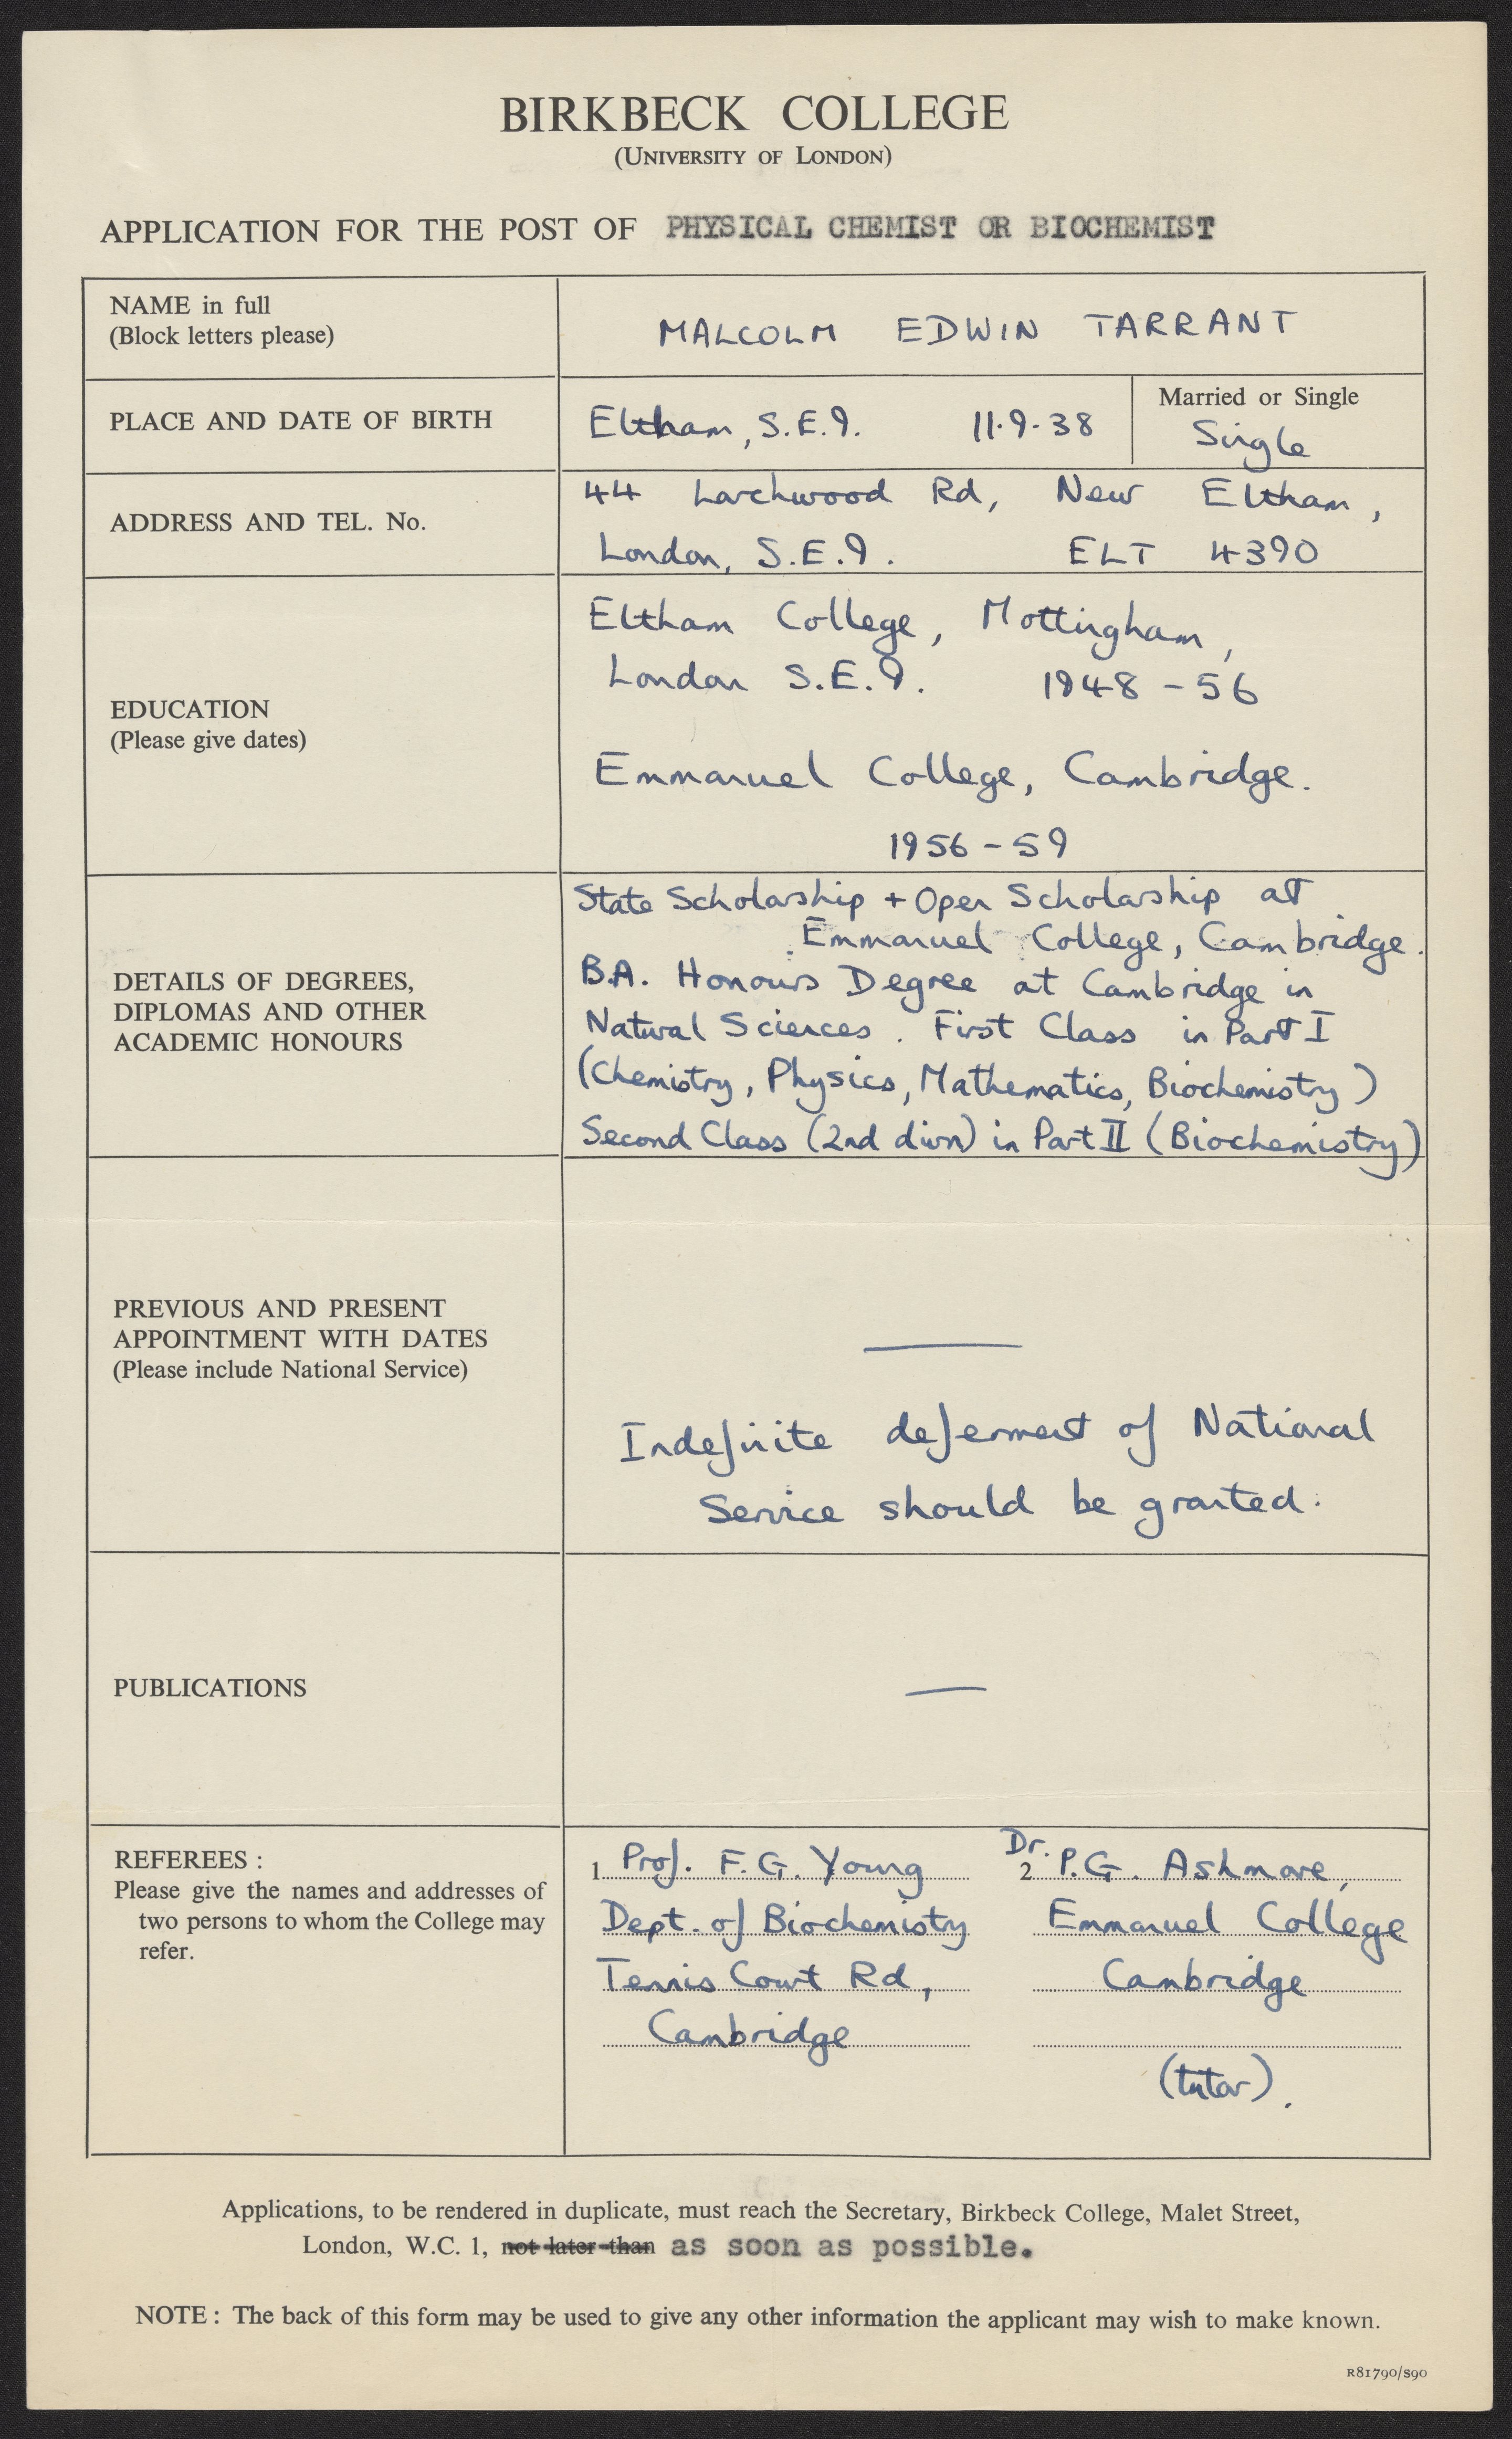 BIRKBECK COLLEGE
(UNIVERSITY OF LONDON)
APPLICATION FOR THE POST OF PHYSICAL CHEMIST OR BIOCHEMIST
NAME in full
(Block letters please)
MALCOLM EDWIN TARRANT
PLACE AND DATE OF BIRTH
Eltham, S.E.9. 11.9.38
Married or Single
Single
ADDRESS AND TEL. No.
44 Larchwood Rd, New Eltham,
London, S.E.9. ELT 4390
EDUCATION
(Please give dates)
Eltham College, Mottingham,
London S.E.9. 1948-56
Emmanuel College, Cambridge.
1956-59
DETAILS OF DEGREES,
DIPLOMAS AND OTHER
ACADEMIC HONOURS
State Scholarship + Open Scholarship at
Emmanuel College, Cambridge.
B.A. Honours Degree at Cambridge in
Natural Sciences. First Class in Part I
(Chemistry, Physics, Mathematics, Biochemistry)
Second Class (2nd divn) in Part II (Biochemistry)
PREVIOUS AND PRESENT
APPOINTMENT WITH DATES
(Please include National Service)
Indefinite deferment of National
Service should be granted.
PUBLICATIONS
—
REFEREES :
Please give the names and addresses of
two persons to whom the College may
refer.
1. Prof. F.G. Young
Dept. of Biochemistry
Tennis Court Rd,
Cambridge
Dr.
2. P.G. Ashmore,
Emmanuel College
Cambridge
(tutor).
Applications, to be rendered in duplicate, must reach the Secretary, Birkbeck College, Malet Street,
London, W.C. 1, not later than as soon as possible.
NOTE : The back of this form may be used to give any other information the applicant may wish to make known.
R81790/S90